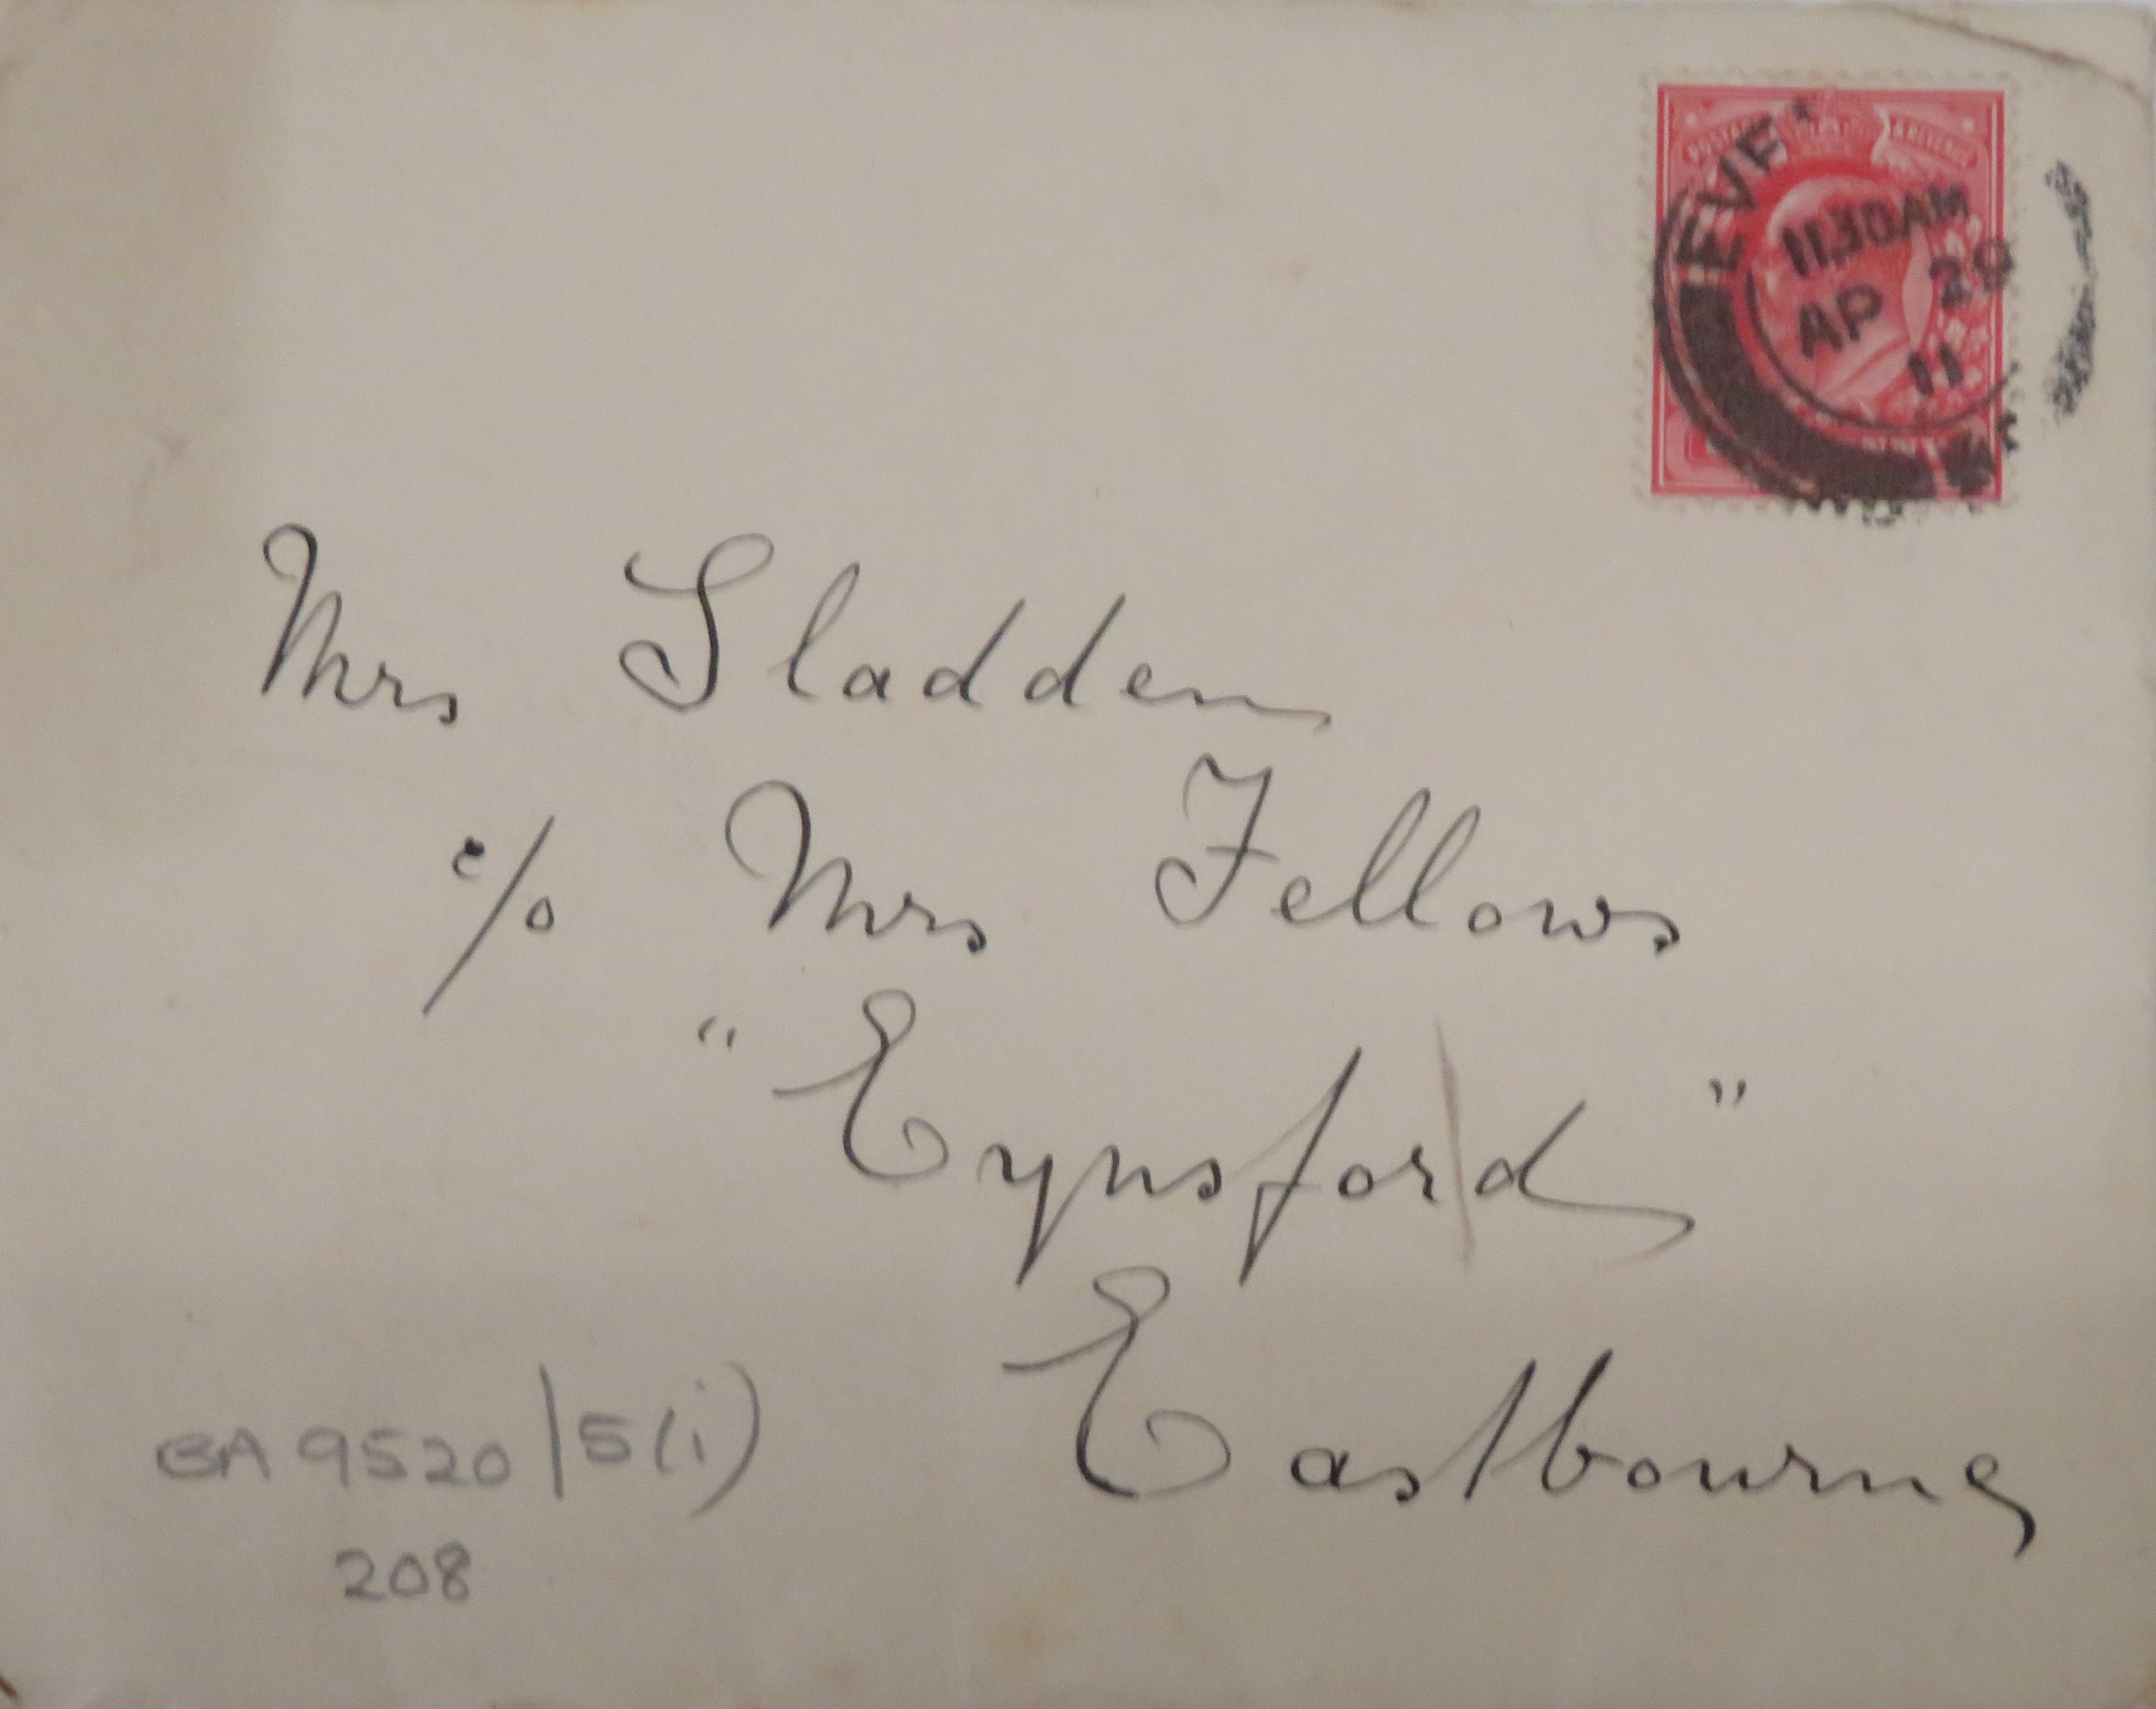 EVE
11.30AM
AP 29
11
Mrs Sladden
c/o Mrs Fellows
"Eynsford"
Eastbourne
BA 9520/5(i)
208